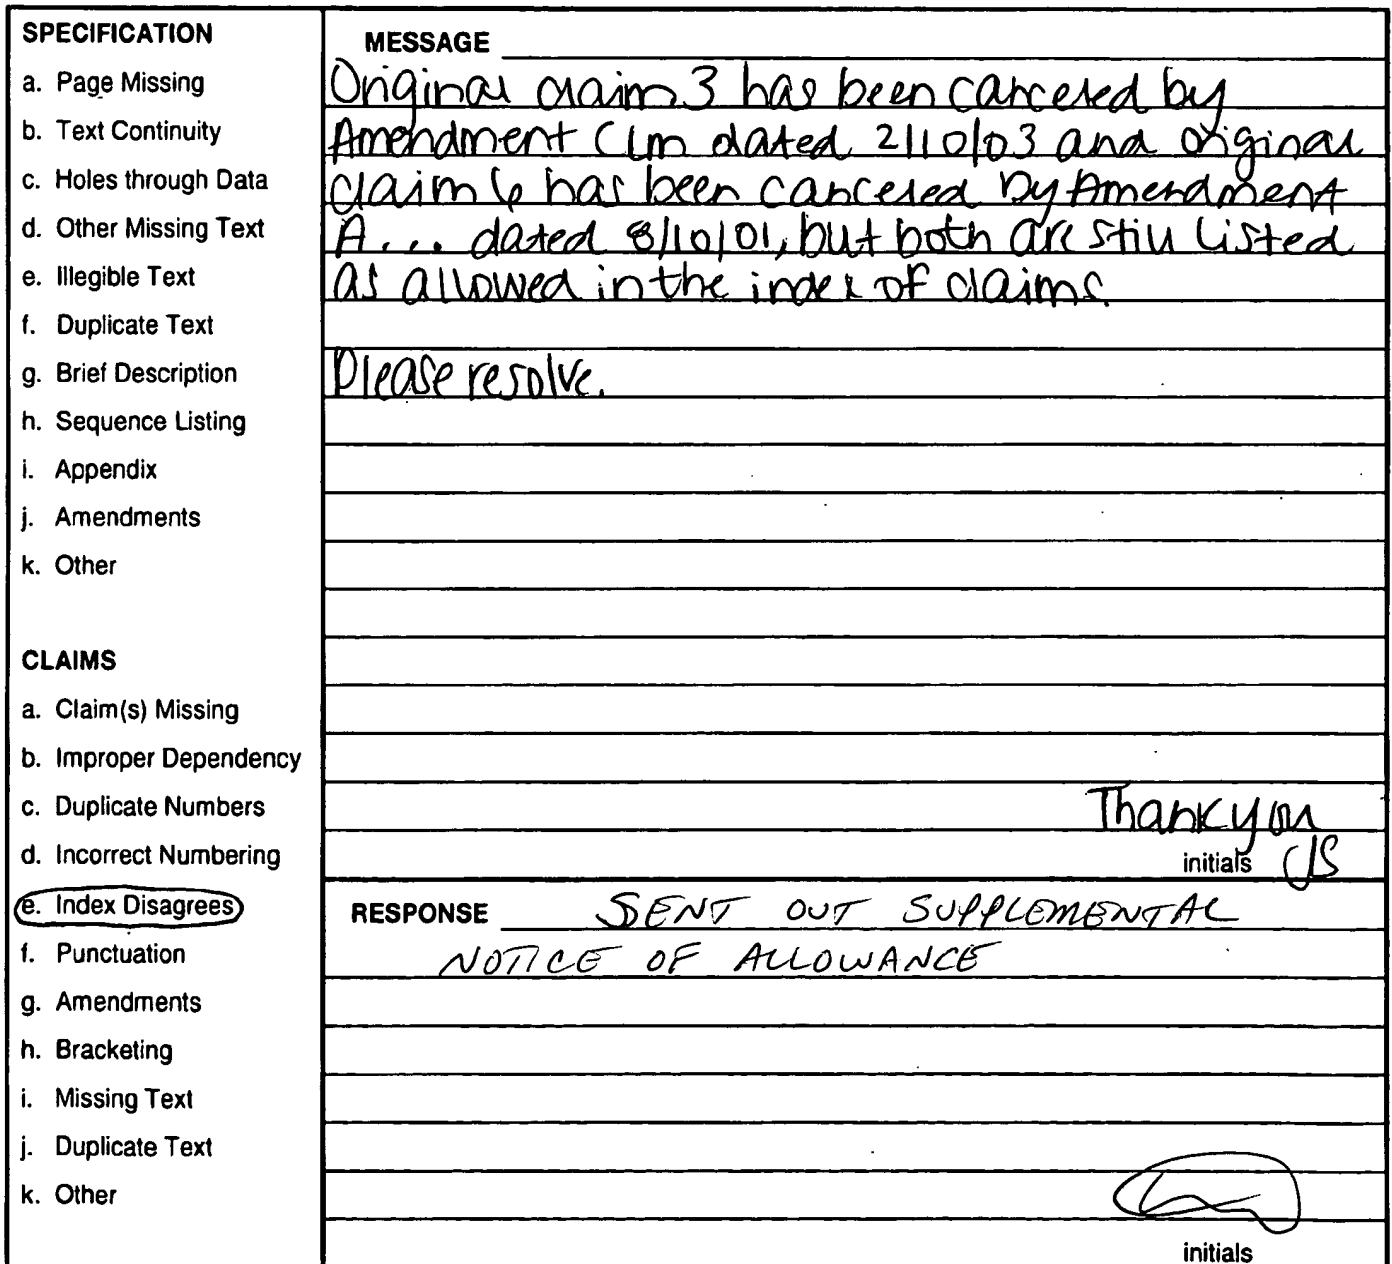 SPECIFICATION
a. Page Missing
b. Text Continuity
c. Holes through Data
d. Other Missing Text
e. Illegible Text
f. Duplicate Text
g. Brief Description
h. Sequence Listing
i. Appendix
j. Amendments
k. Other
CLAIMS
a. Claim(s) Missing
b. Improper Dependency
c. Duplicate Numbers
d. Incorrect Numbering
e. Index Disagrees
f. Punctuation
g. Amendments
h. Bracketing
i. Missing Text
j. Duplicate Text
k. Other
MESSAGE
Original claim 3 has been canceled by
Amendment Clm dated 2/10/03 and original
claim 6 has been canceled by Amendment
A... dated 8/10/01, but both are still listed
as allowed in the index of claims.
Please resolve.
Thank you
initials JS
RESPONSE SENT OUT SUPPLEMENTAL
NOTICE OF ALLOWANCE
initials